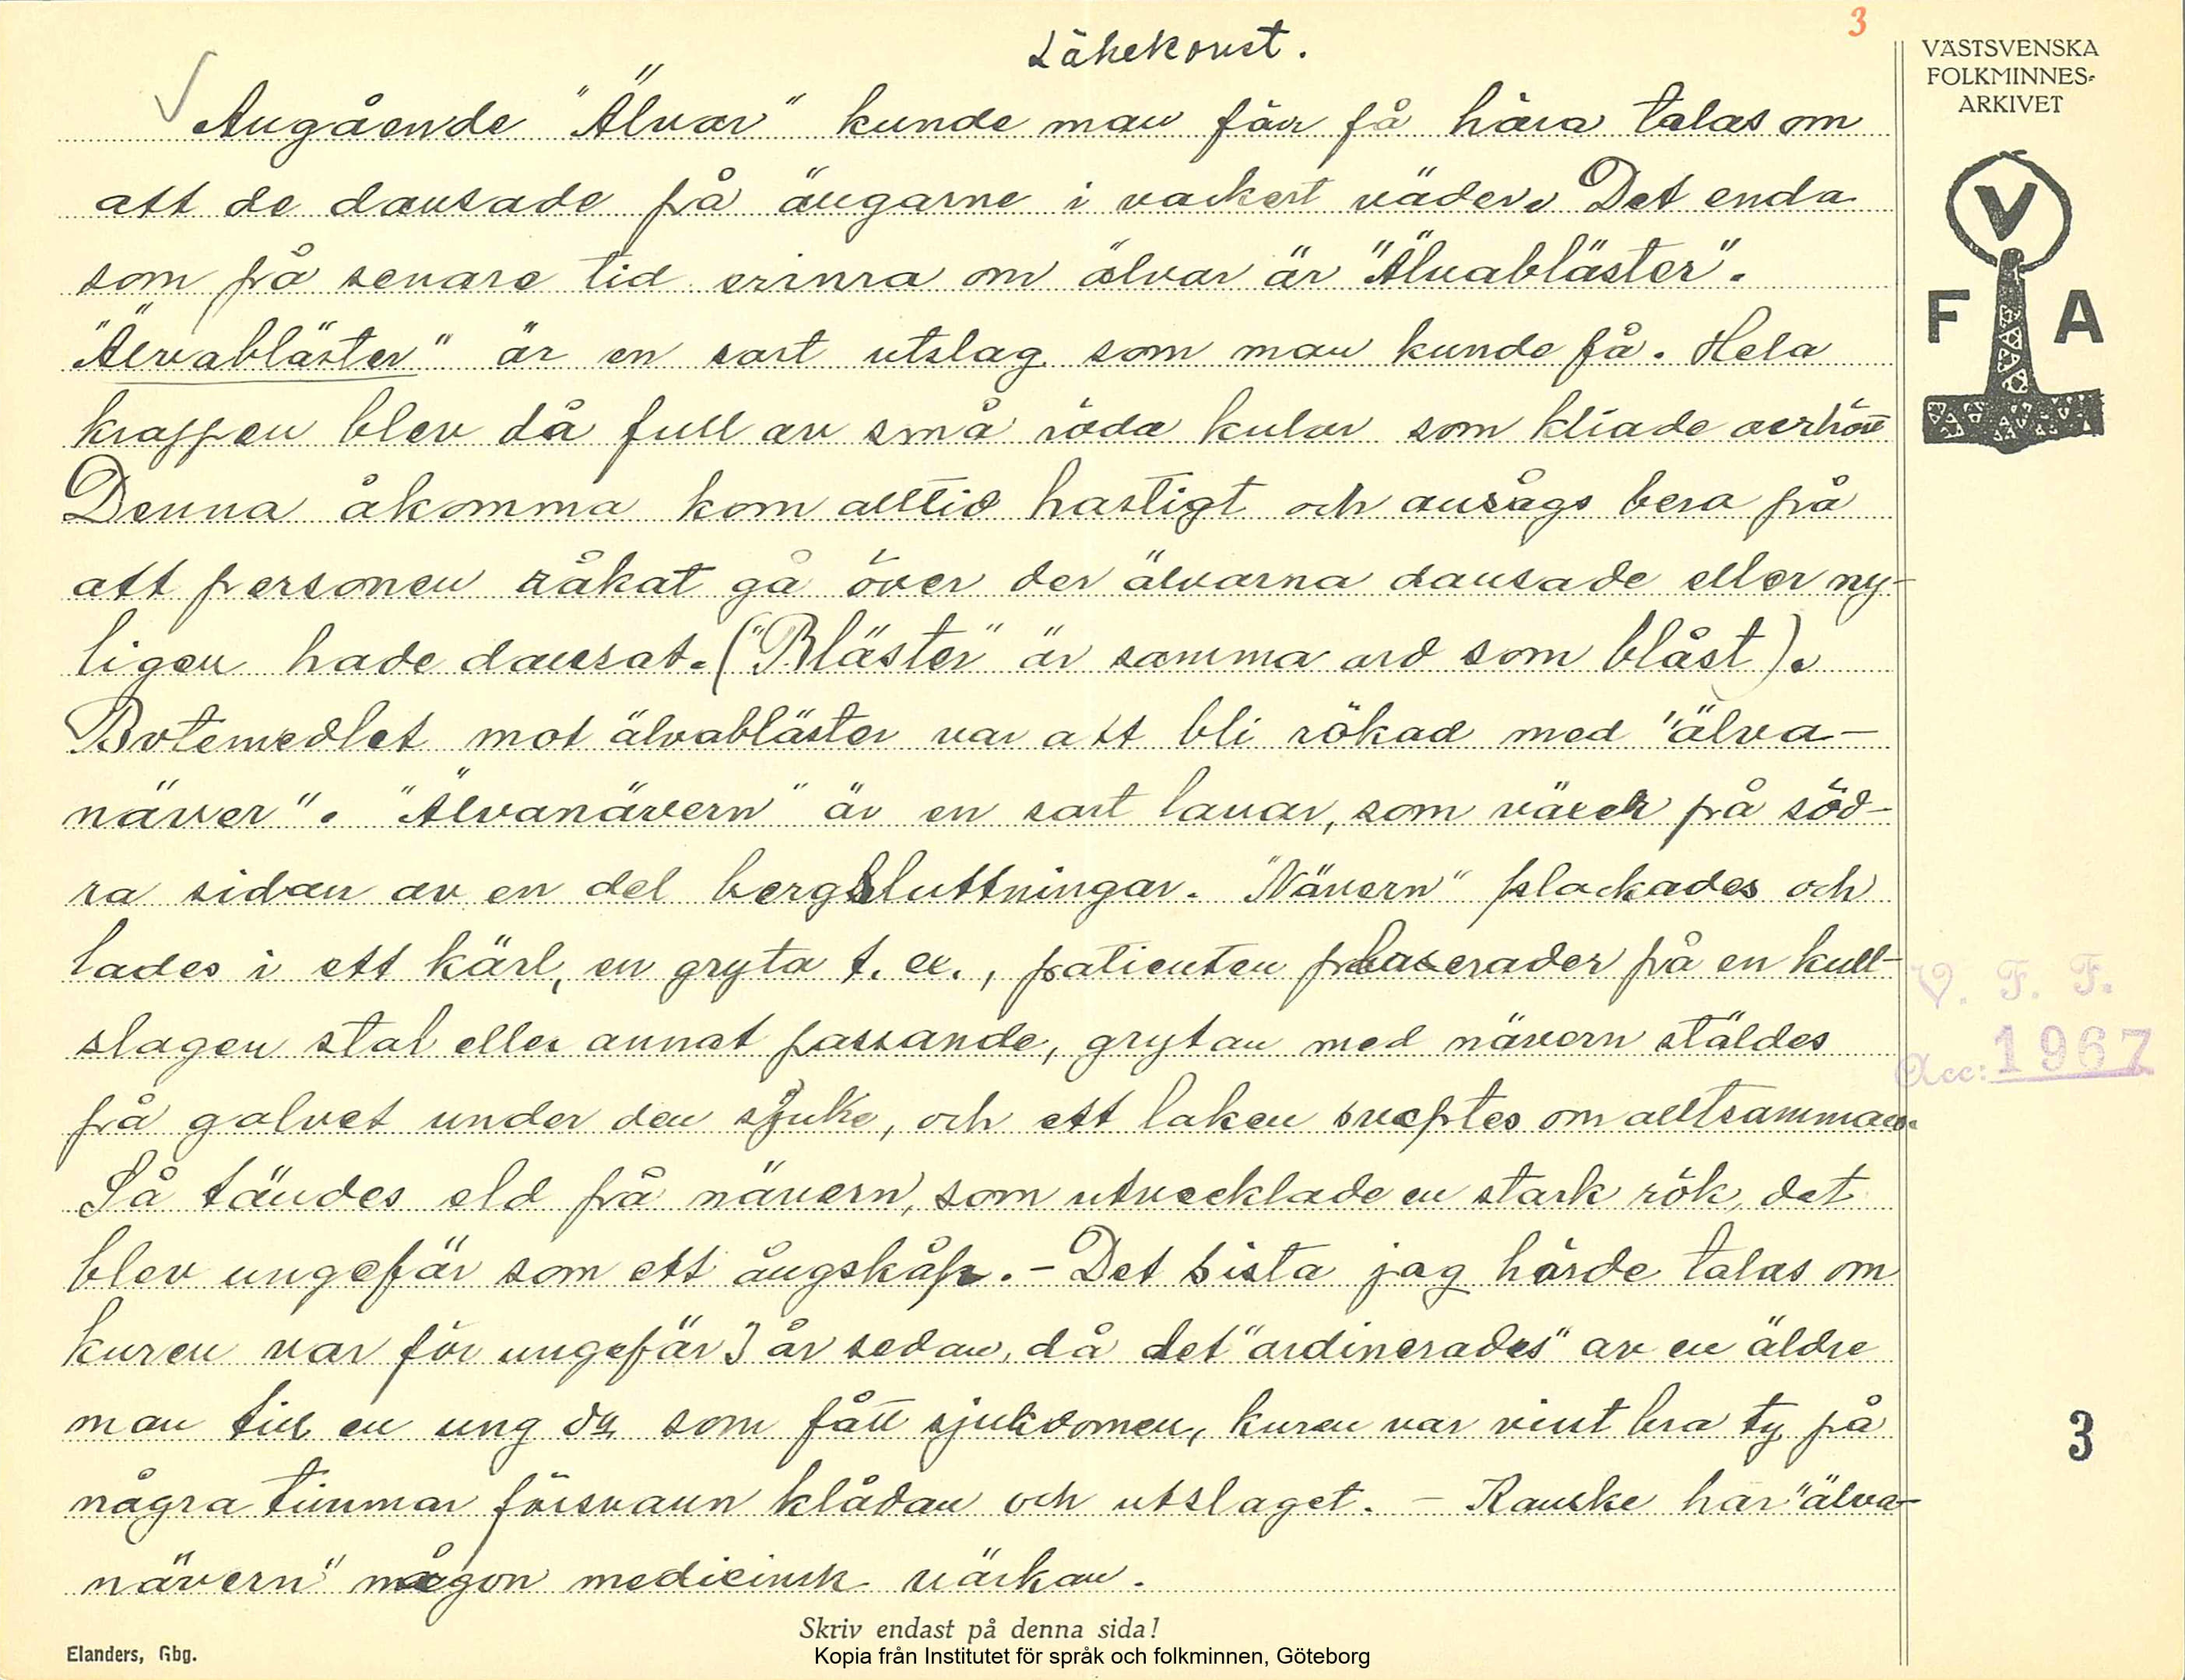 3
Läkekonst.
VÄSTSVENSKA
FOLKMINNES-
ARKIVET
V
F A
Angående "Älvar" kunde man förr få höra talas om
att de dansade på ängarne i vackert väder. Det enda
som på senare tid erinra om älvar är "Älvabläster".
"Älvabläster" är en sort utslag som man kunde få. Hela
kroppen blev då full av små röda kulor som kliade oerhört
Denna åkomma kom alltid hastigt och ansågs bero på
att personen råkat gå över der älvarna dansade eller ny-
ligen hade dansat. ("Bläster" är samma ord som blåst).
Botemedlet mot älvabläster var att bli rökad med "älva-
näver". "Älvanävern" är en sort lavar, som växer på söd-
ra sidan av en del bergsluttningar. "Nävern" plockades och
lades i ett kärl, en gryta t. ex., patienten placerades på en kull-
slagen stol eller annat passande, grytan med nävern stäldes
på golvet under den sjuke, och ett laken sveptes om alltsamman.
Så tändes eld på nävern, som utvecklade en stark rök, det
blev ungefär som ett ångskåp. - Det sista jag hörde talas om
kuren var för ungefär 3 år sedan, då det "ordinerades" av en äldre
man till en ung som fått sjukdomen, kuren var visst bra ty på
några timmar försvann klådan och utslaget. - Kanske har "älva-
nävern" någon medicinsk värkan.
V. F. F.
Acc: 1967
3
Skriv endast på denna sida!
Elanders, Gbg.
Kopia från Institutet för språk och folkminnen, Göteborg